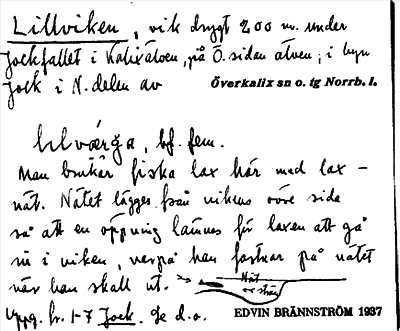 Lillviken, vik drygt 200 m. under
Jockfallet i Kalixälven, på Ö. sidan älven; i byn
Jock i N. delen av Överkalix sn o. tg Norrb. l.
bf. fem.
Man brukar fiska lax här med lax-
nät. Nätet lägges från vikens övre sida
så att en öppning lämnas för laxen att gå
in i viken, varpå han fastnar på nätet
när han skall ut. Nät
Uppg. fr. 1-7 Jock. Se d.o. EDVIN BRÄNNSTRÖM 1937